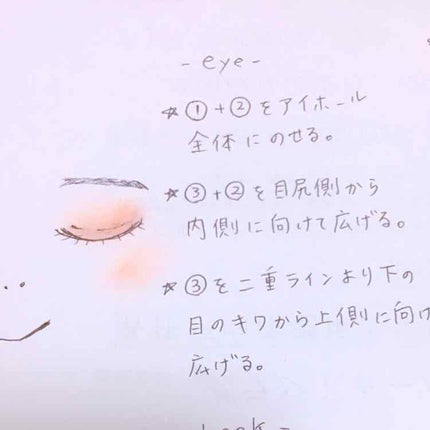 - eye -
☆①+②をアイホール
全体にのせる。
☆③+②を目尻側から
内側に向けて広げる。
☆③を二重ラインより下の
目のキワから上側に向け
広げる。